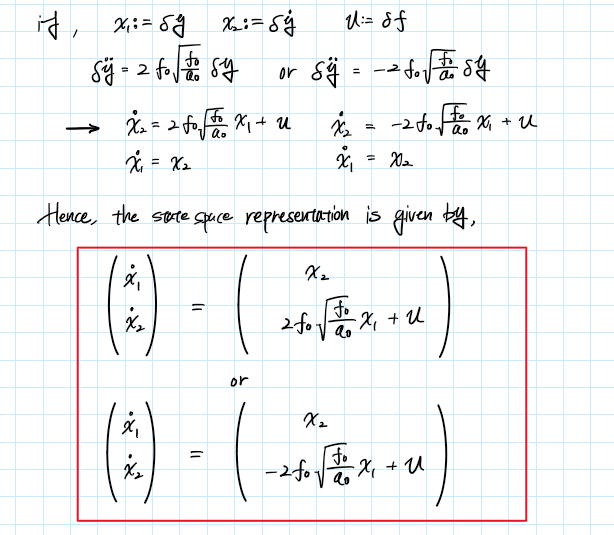 if, x₁:= δy x₂:= δẏ u:= δf
δÿ = 2f₀√(f₀/a₀) δy or δÿ = -2f₀√(f₀/a₀) δy
→ ẋ₂ = 2f₀√(f₀/a₀) x₁ + u ẋ₂ = -2f₀√(f₀/a₀) x₁ + u
ẋ₁ = x₂ ẋ₁ = x₂
Hence, the state space representation is given by,
(ẋ₁ ẋ₂) = (x₂ 2f₀√(f₀/a₀) x₁ + u)
or
(ẋ₁ ẋ₂) = (x₂ -2f₀√(f₀/a₀) x₁ + u)